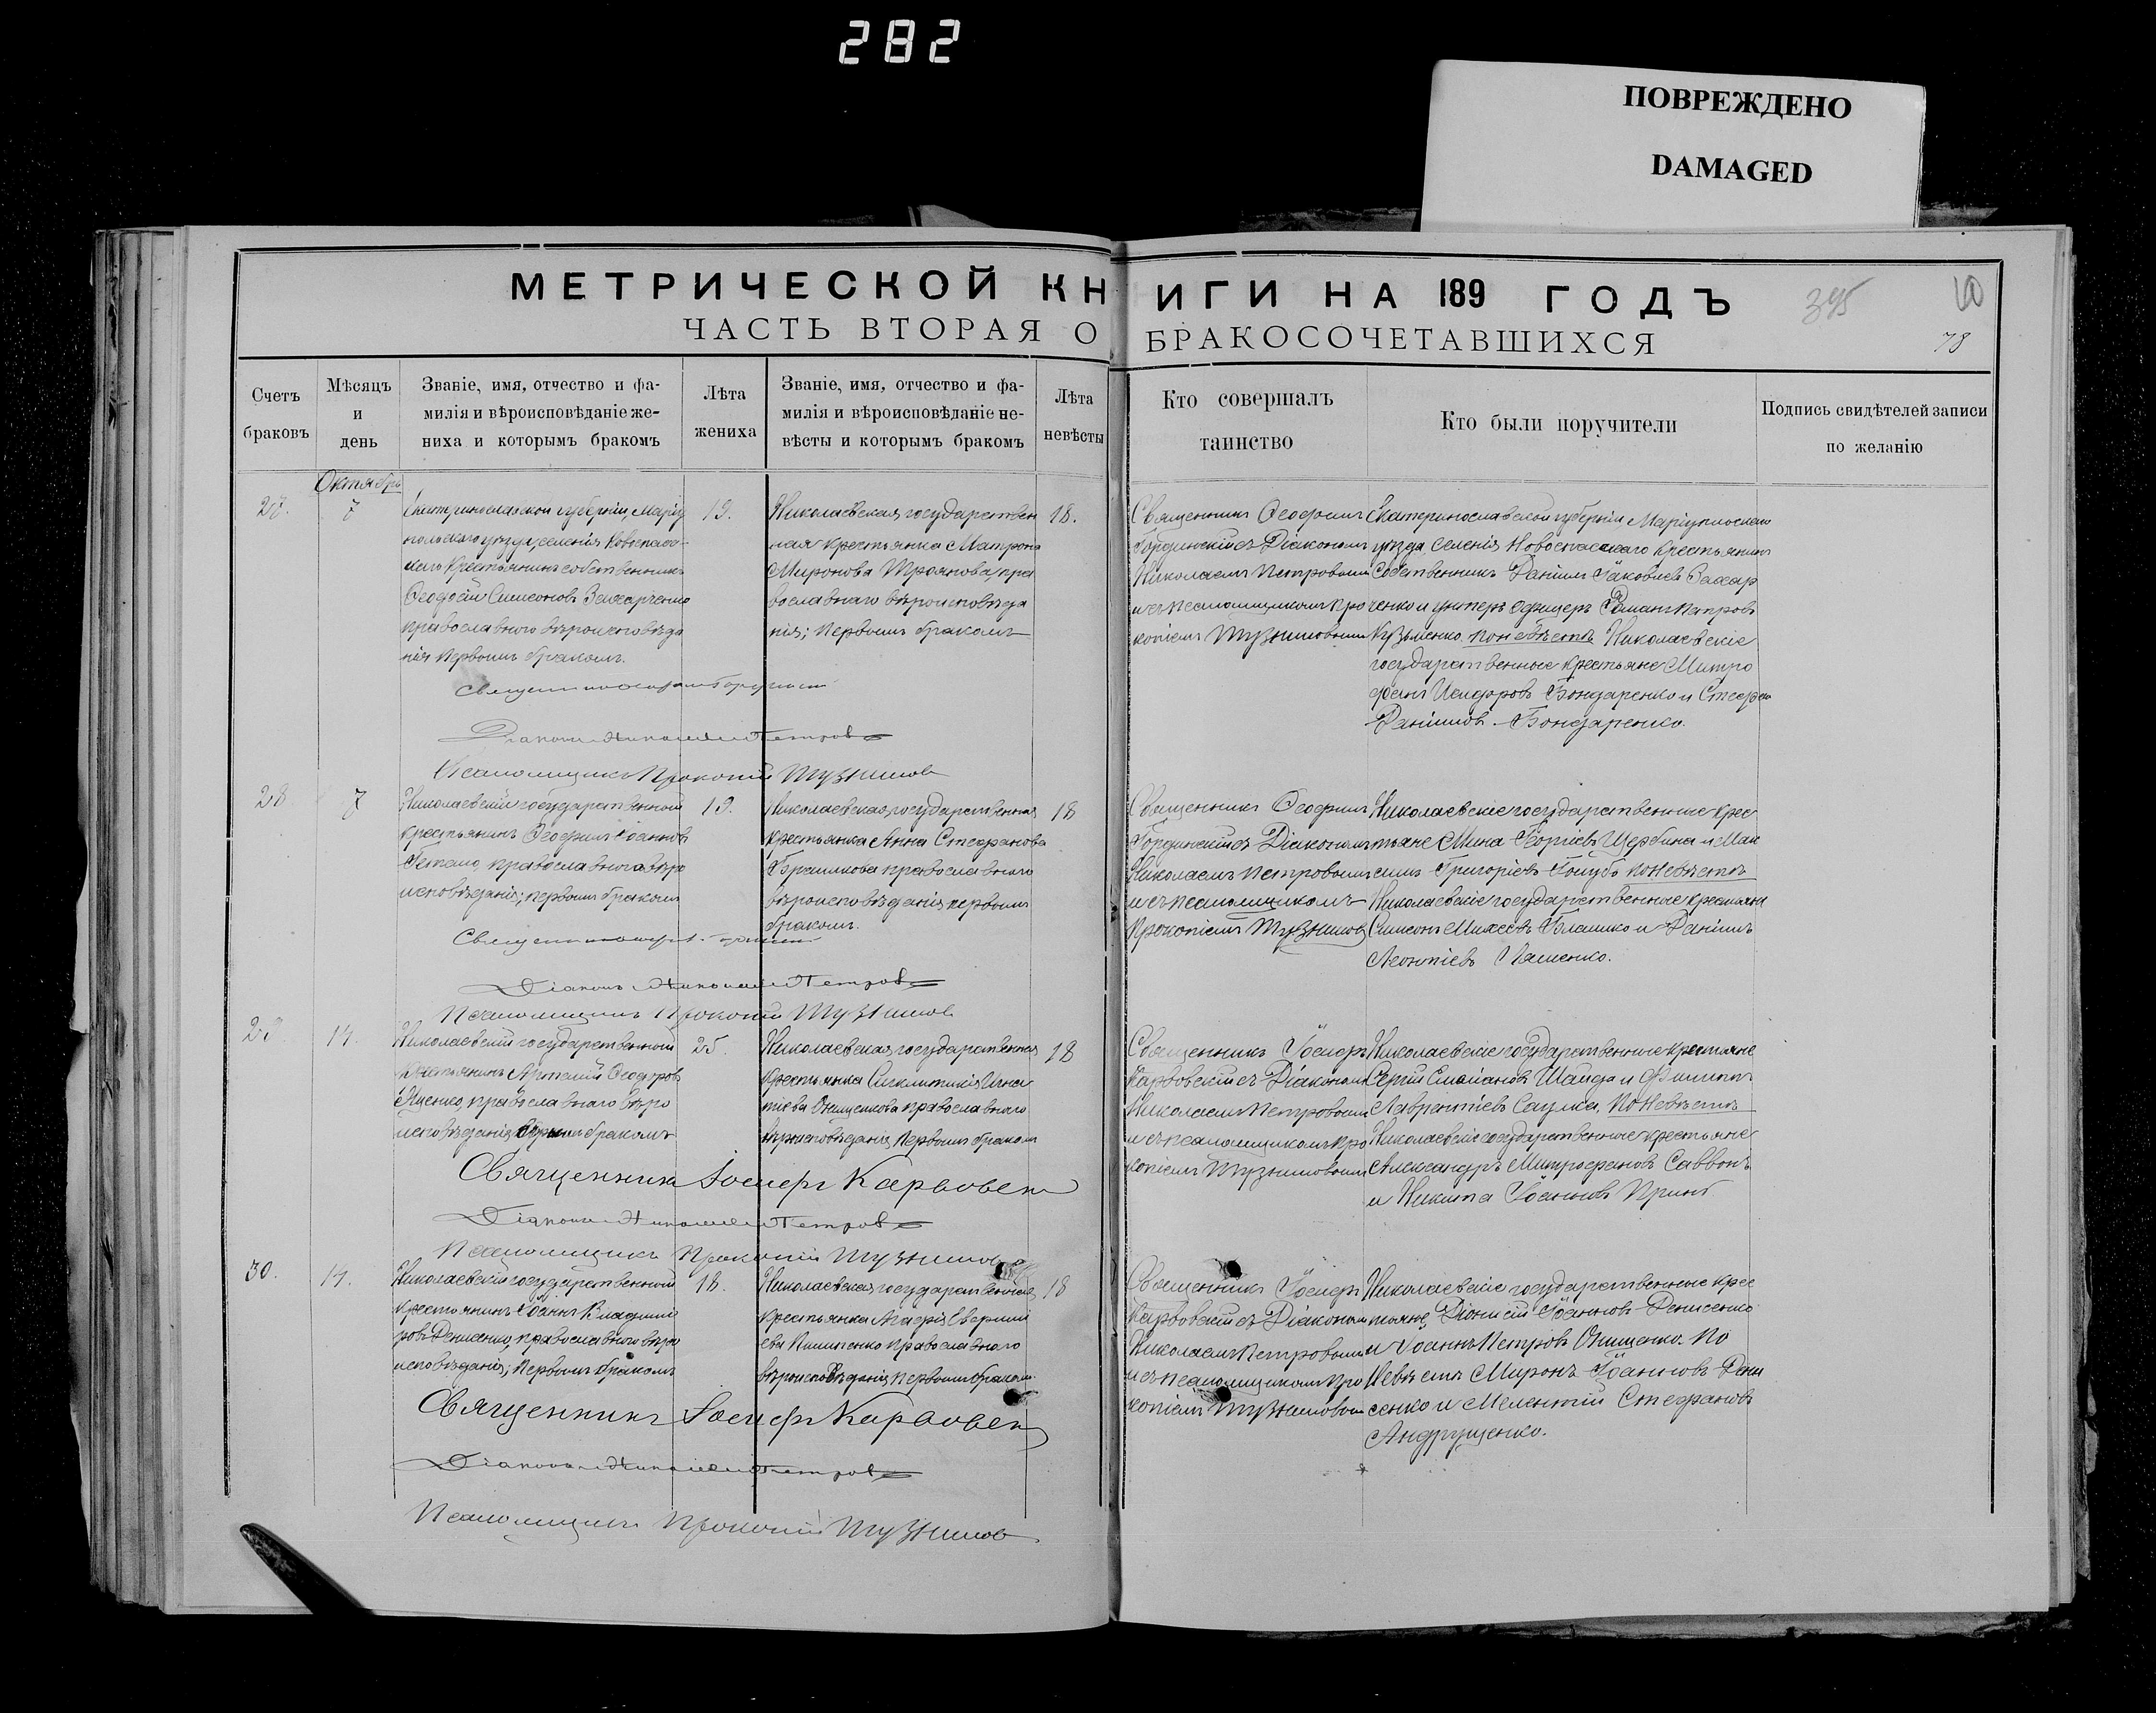 282
ПОВРЕЖДЕНО
DAMAGED
МЕТРИЧЕСКОЙ КНИГИ НА 189 ГОДЪ
395
78
ЧАСТЬ ВТОРАЯ О БРАКОСОЧЕТАВШИХСЯ
Счетъ браковъ
Мѣсяцъ и день
Званіе, имя, отчество и фа-
милія и вѣроисповѣданіе же-
ниха и которымъ бракомъ
Лѣта жениха
Званіе, имя, отчество и фа-
милія и вѣроисповѣданіе не-
вѣсты и которымъ бракомъ
Лѣта невѣсты
Кто совершалъ таинство
Кто были поручители
Подпись свидѣтелей записи по желанію
Октябрь
27.
7
Екатеринославской губерніи, Маріу
польскаго уѣзда, селенія Новоспасс-
каго крестьянинъ собственникъ
Ѳеодосій Симеоновъ Захарченко
православнаго вѣроисповѣда
нія первымъ бракомъ.
19.
Николаевская государствен
ная крестьянка Матрона
Миронова Троянова, пра
вославнаго вѣроисповѣда
нія; первымъ бракомъ
18.
Священникъ Ѳеофилъ
Гординскій съ Діакономъ
Николаемъ Петровымъ
и съ псаломщикомъ Про
копіемъ Тузниковымъ
Екатеринославской губерніи Маріупольскаго
уѣзда, селенія Новоспасскаго крестьянинъ
Собственникъ Даніилъ Іаковлевъ Захар
ченко и унтеръ офицеръ Романъ Капровъ
Кузьменко, по невѣстѣ Николаевскіе
государственные крестьяне Митро
фанъ Исидоровъ Бондаренко и Стефанъ
Даніиловъ Бондаренко.
Діаконъ Николай Петровъ
Псаломщикъ Прокопій Тузниковъ
28
7
Николаевскій государственный
крестьянинъ Ѳеофилъ Іоанновъ
православнаго вѣро
исповѣданія; первымъ бракомъ
19.
Николаевская государственная
крестьянка Анна Стефанова
православнаго
вѣроисповѣданія первымъ
бракомъ.
18
Священникъ Ѳеофилъ
Гординскій съ Діакономъ
Николаемъ Петровымъ
и съ псаломщикомъ
Прокопіемъ Тузниковымъ
Николаевскіе государственные крес
тьяне Мина Георгіевъ Щербина и Мак
симъ Григоріевъ Голубъ по невѣстѣ
Николаевскіе государственные крестьяне
Симеонъ Михеевъ и Даніилъ
Леонтіевъ
Діаконъ Николай Петровъ
Псаломщикъ Прокопій Тузниковъ
14.
Николаевскій государственный
крестьянинъ Артемій Ѳеодоровъ
Яценко, православнаго вѣро
исповѣданія бракомъ
25.
Николаевская государственная
крестьянка Синклитикія Игна
тіева Онищенкова православнаго
вѣроисповѣданія первымъ бракомъ
18
Священникъ Іосифъ
Карвовскій съ Діакономъ
Николаемъ Петровымъ
и съ псаломщикомъ Про
копіемъ Тузниковымъ
Николаевскіе государственные крестьяне
Сергій Шайда и Филиппъ
Лаврентіевъ Саулка, по невѣстѣ
Николаевскіе государственные крестьяне
Александръ Митрофановъ
и Никита Іоанновъ
Священникъ Іосифъ Карвовскій
Діаконъ Николай Петровъ
Псаломщикъ Прокопій Тузниковъ
30.
14.
Николаевскій государственный
крестьянинъ Іоаннъ Владимі
ровъ Денисенко, православнаго вѣро
исповѣданія; первымъ бракомъ
18.
Николаевская государственная
крестьянка Агафія
православнаго
вѣроисповѣданія первымъ бракомъ.
18
Священникъ Іосифъ
Карвовскій съ Діакономъ
Николаемъ Петровымъ
и съ псаломщикомъ Про
копіемъ Тузниковымъ
Николаевскіе государственные крес
тьяне, Діонисій Іоанновъ Денисенко
и Іоаннъ Петровъ Онищенко. По
невѣстѣ Миронъ Іоанновъ Дени
сенко и Мелентій Стефановъ
Андрущенко.
Священникъ Іосифъ Карвовскій
Діаконъ Николай Петровъ
Псаломщикъ Прокопій Тузниковъ